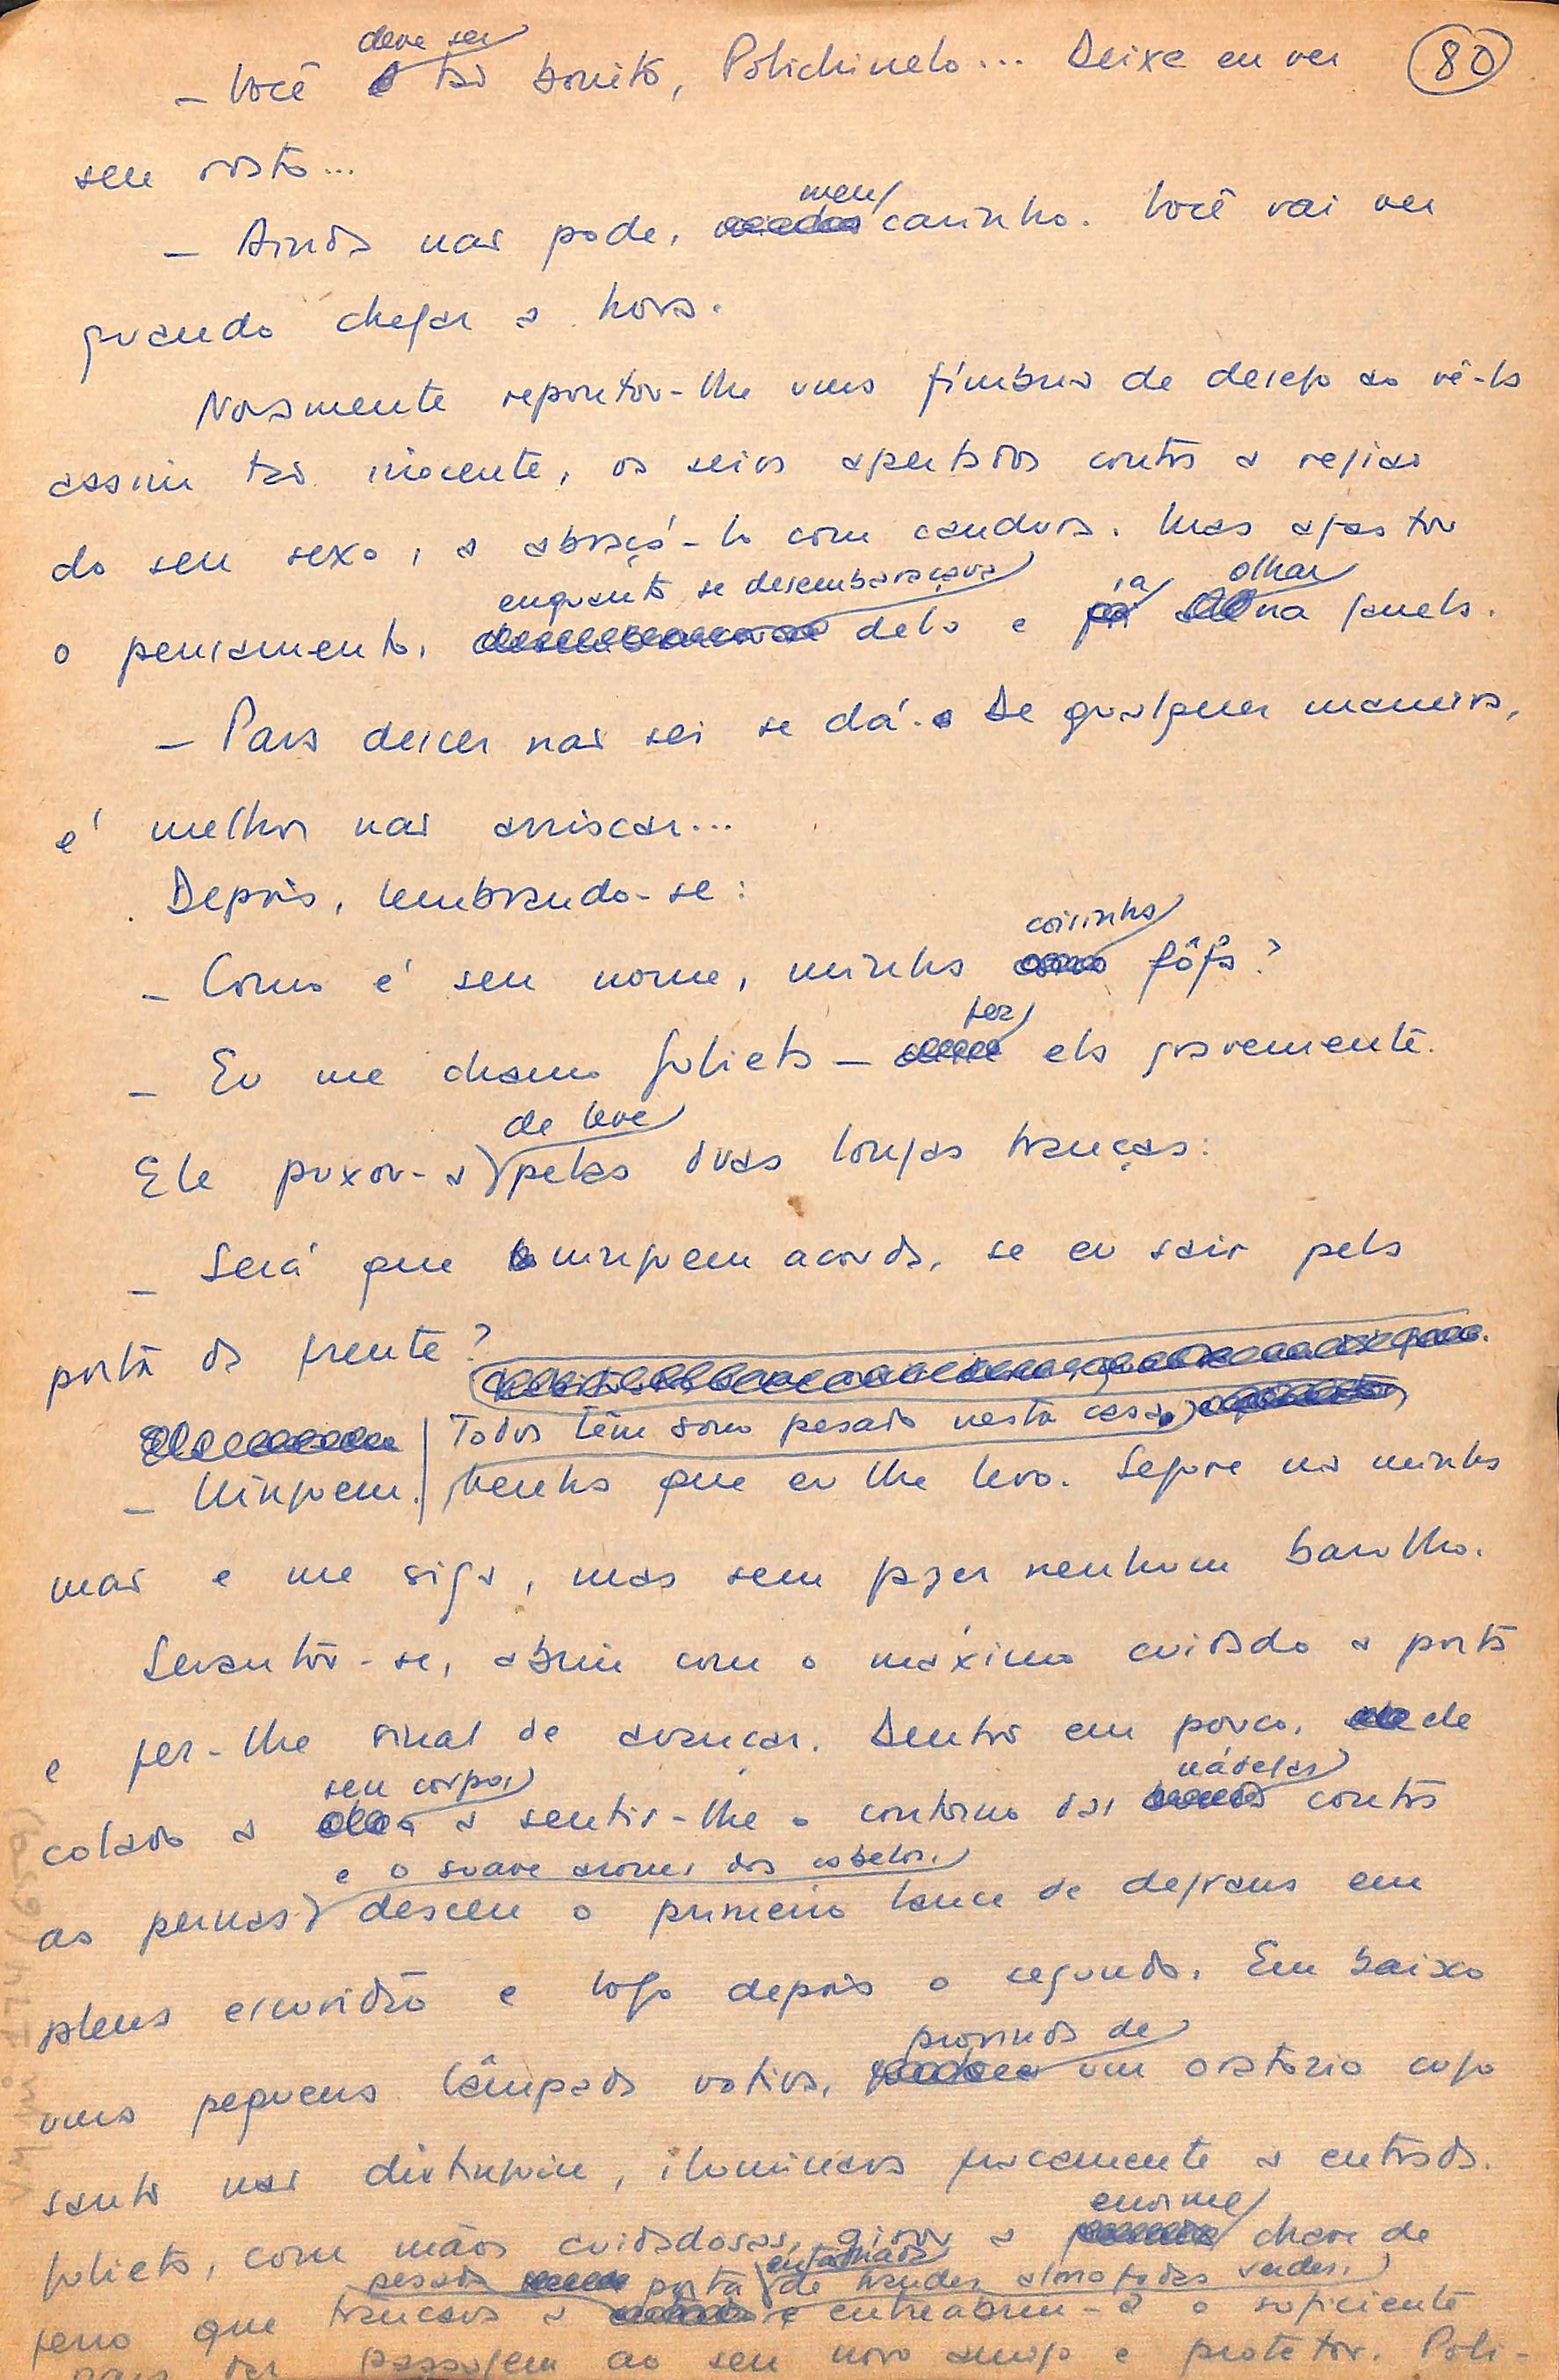 80
— Você deve ser tão bonito, Polichinelo... Deixe eu ver
seu rosto...
— Ainda não pode, meu carinho. Você vai ver
quando chegar a hora.
Novamente repontou-lhe uma fímbria de desejo ao vê-la
assim tão inocente, os seios apertados contra a região
do seu sexo, a abraçá-lo com candura. Mas afastou
o pensamento, enquanto se desembaraçava dela e ia olhar na janela.
— Para descer não sei se dá. De qualquer maneira,
é melhor não arriscar...
Depois, lembrando-se:
— Como é seu nome, minha coisinha fôfa?
— Eu me chamo Julieta — fez ela gravemente.
Ele puxou-a de leve pelas duas longas tranças:
— Será que ninguem acorda, se eu sair pela
porta da frente?
Todos têm sono pesado nesta casa
— Ninguem. Venha que eu lhe levo. Segure na minha
mão e me siga, mas sem fazer nenhum barulho.
Levantou-se, abriu com o máximo cuidado a porta
e fez-lhe sinal de avançar. Dentro em pouco, ele
colado a seu corpo, a sentir-lhe o contorno das nádegas contra
as pernas e o suave aroma dos cabelos, desceu o primeiro lance de degraus em
plena escuridão e logo depois o segundo. Em baixo
uma pequena lâmpada votiva, provinda de um oratório cujo
santo não distinguiu, iluminava fracamente a entrada.
Julieta, com mãos cuidadosas, girou a enorme chave de
ferro que trancava a pesada porta entalhada de grandes almofadas verdes, e entreabriu-a o suficiente
para dar passagem ao seu novo amigo e protetor. Poli-